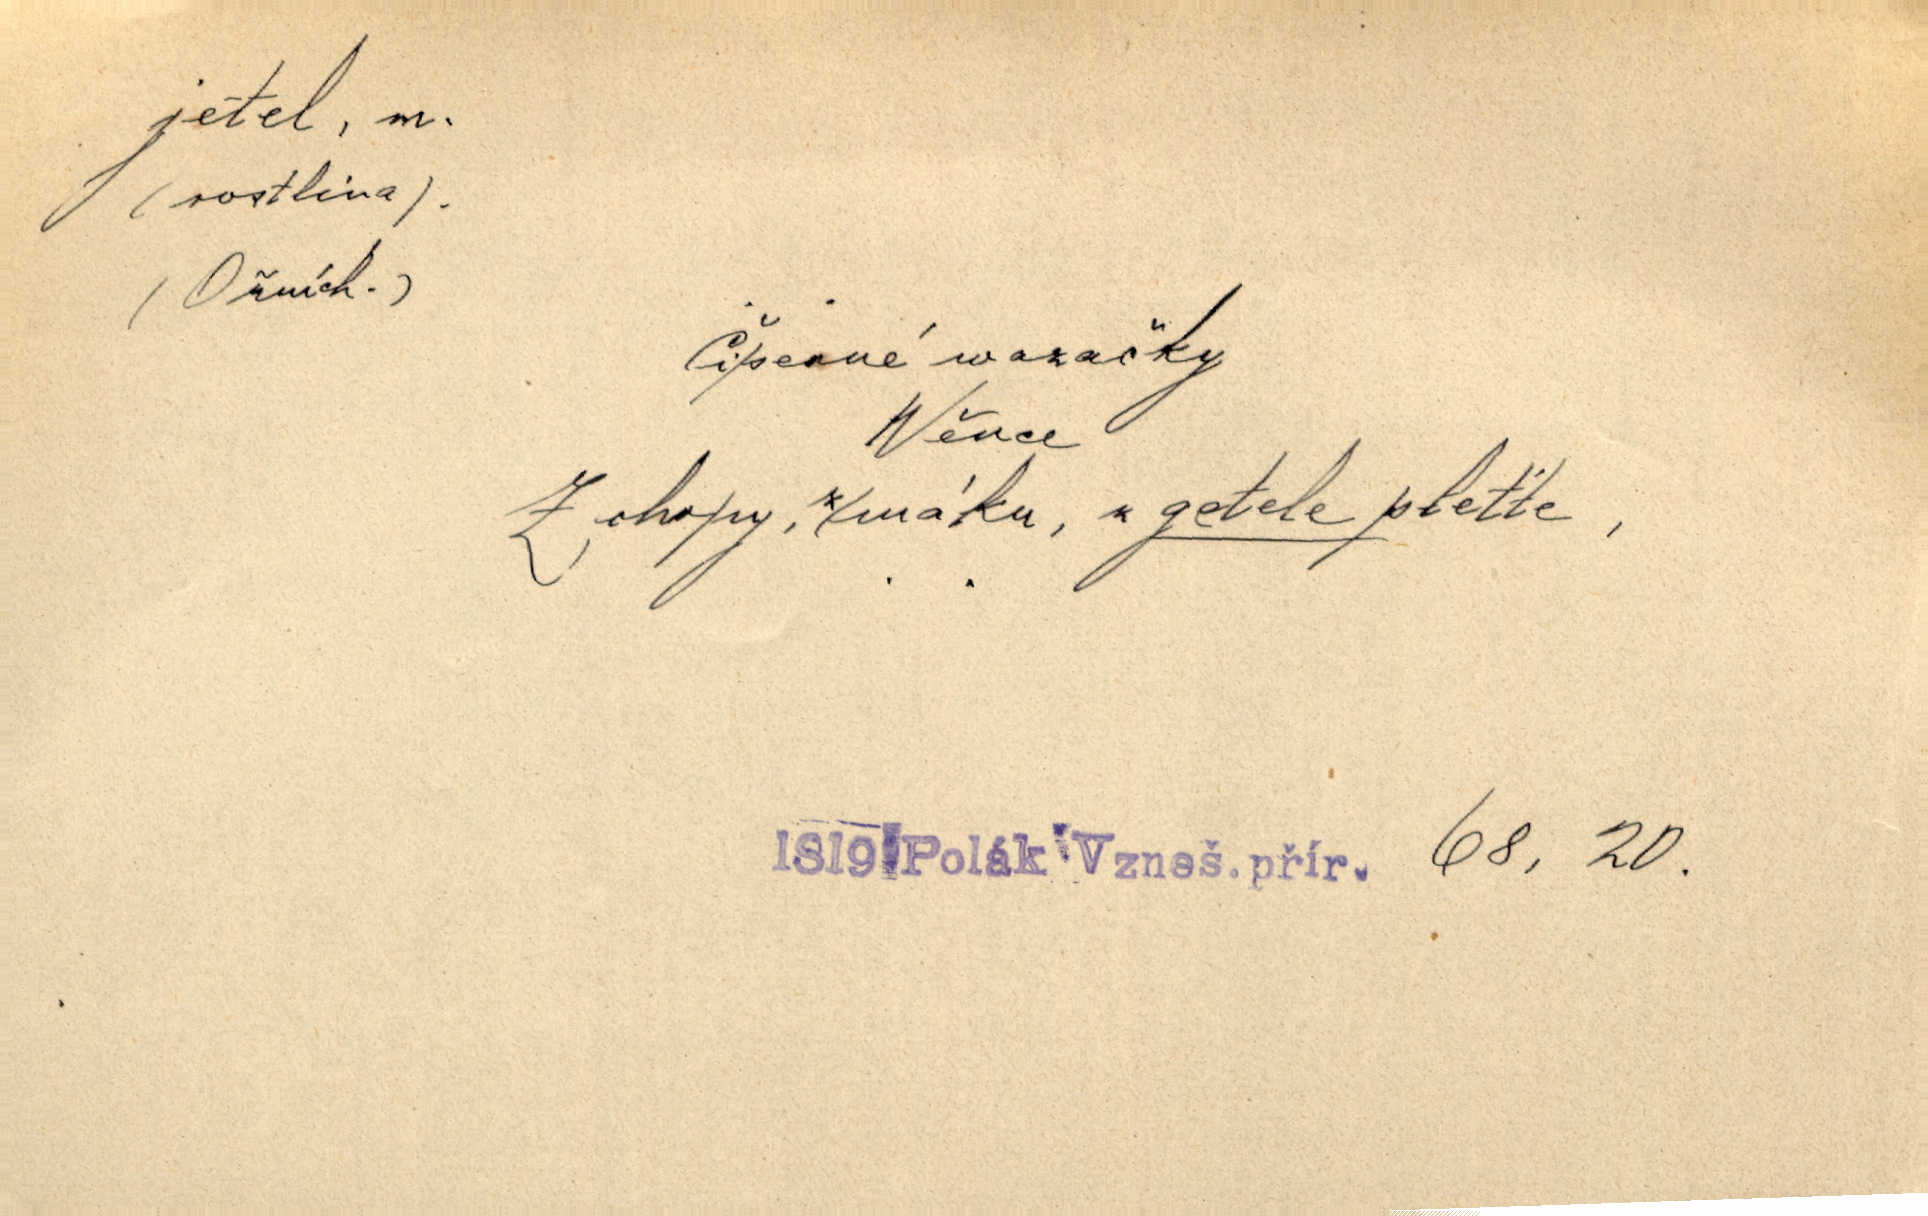 jetel, m.
(rostlina).
(O žních.)
Čiperné wazačky
Wěnce
Z chrpy, z máku, z getele pleťte,
1819 Polák Vzneš. přír. 68, 20.